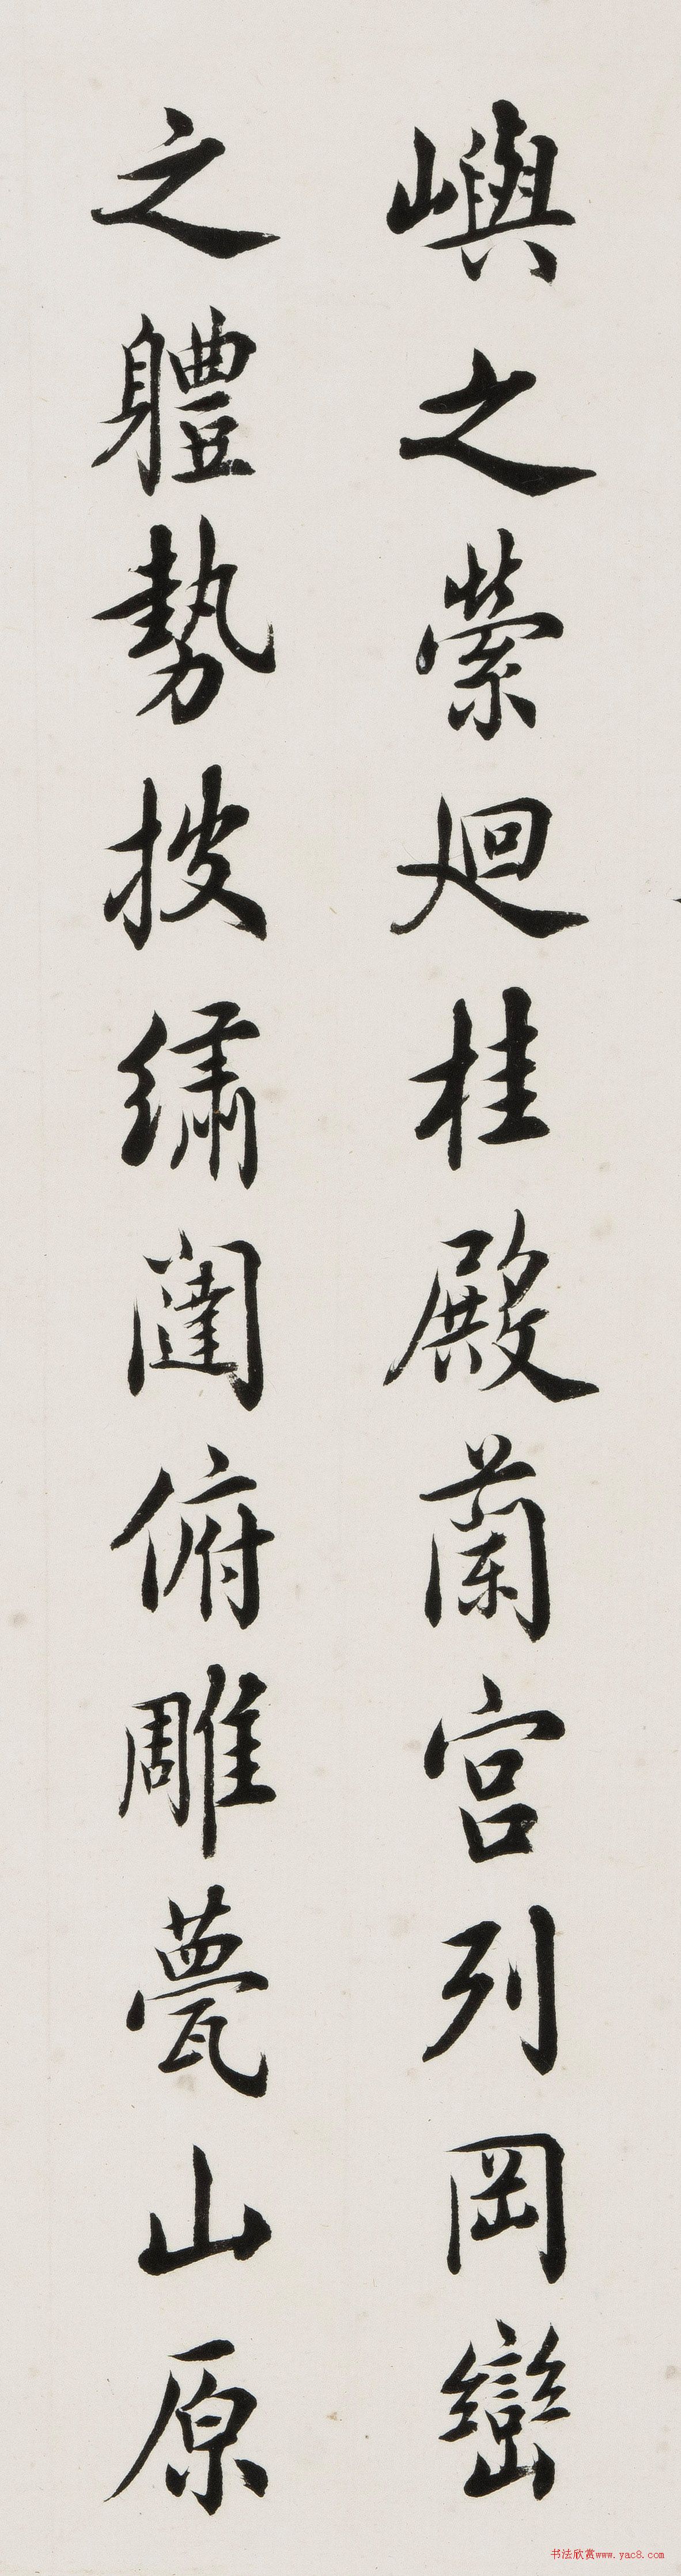 嶼之縈廻桂殿蘭宮列岡巒
之軆勢披繡闥俯雕甍山原
书法欣赏www.yac8.com